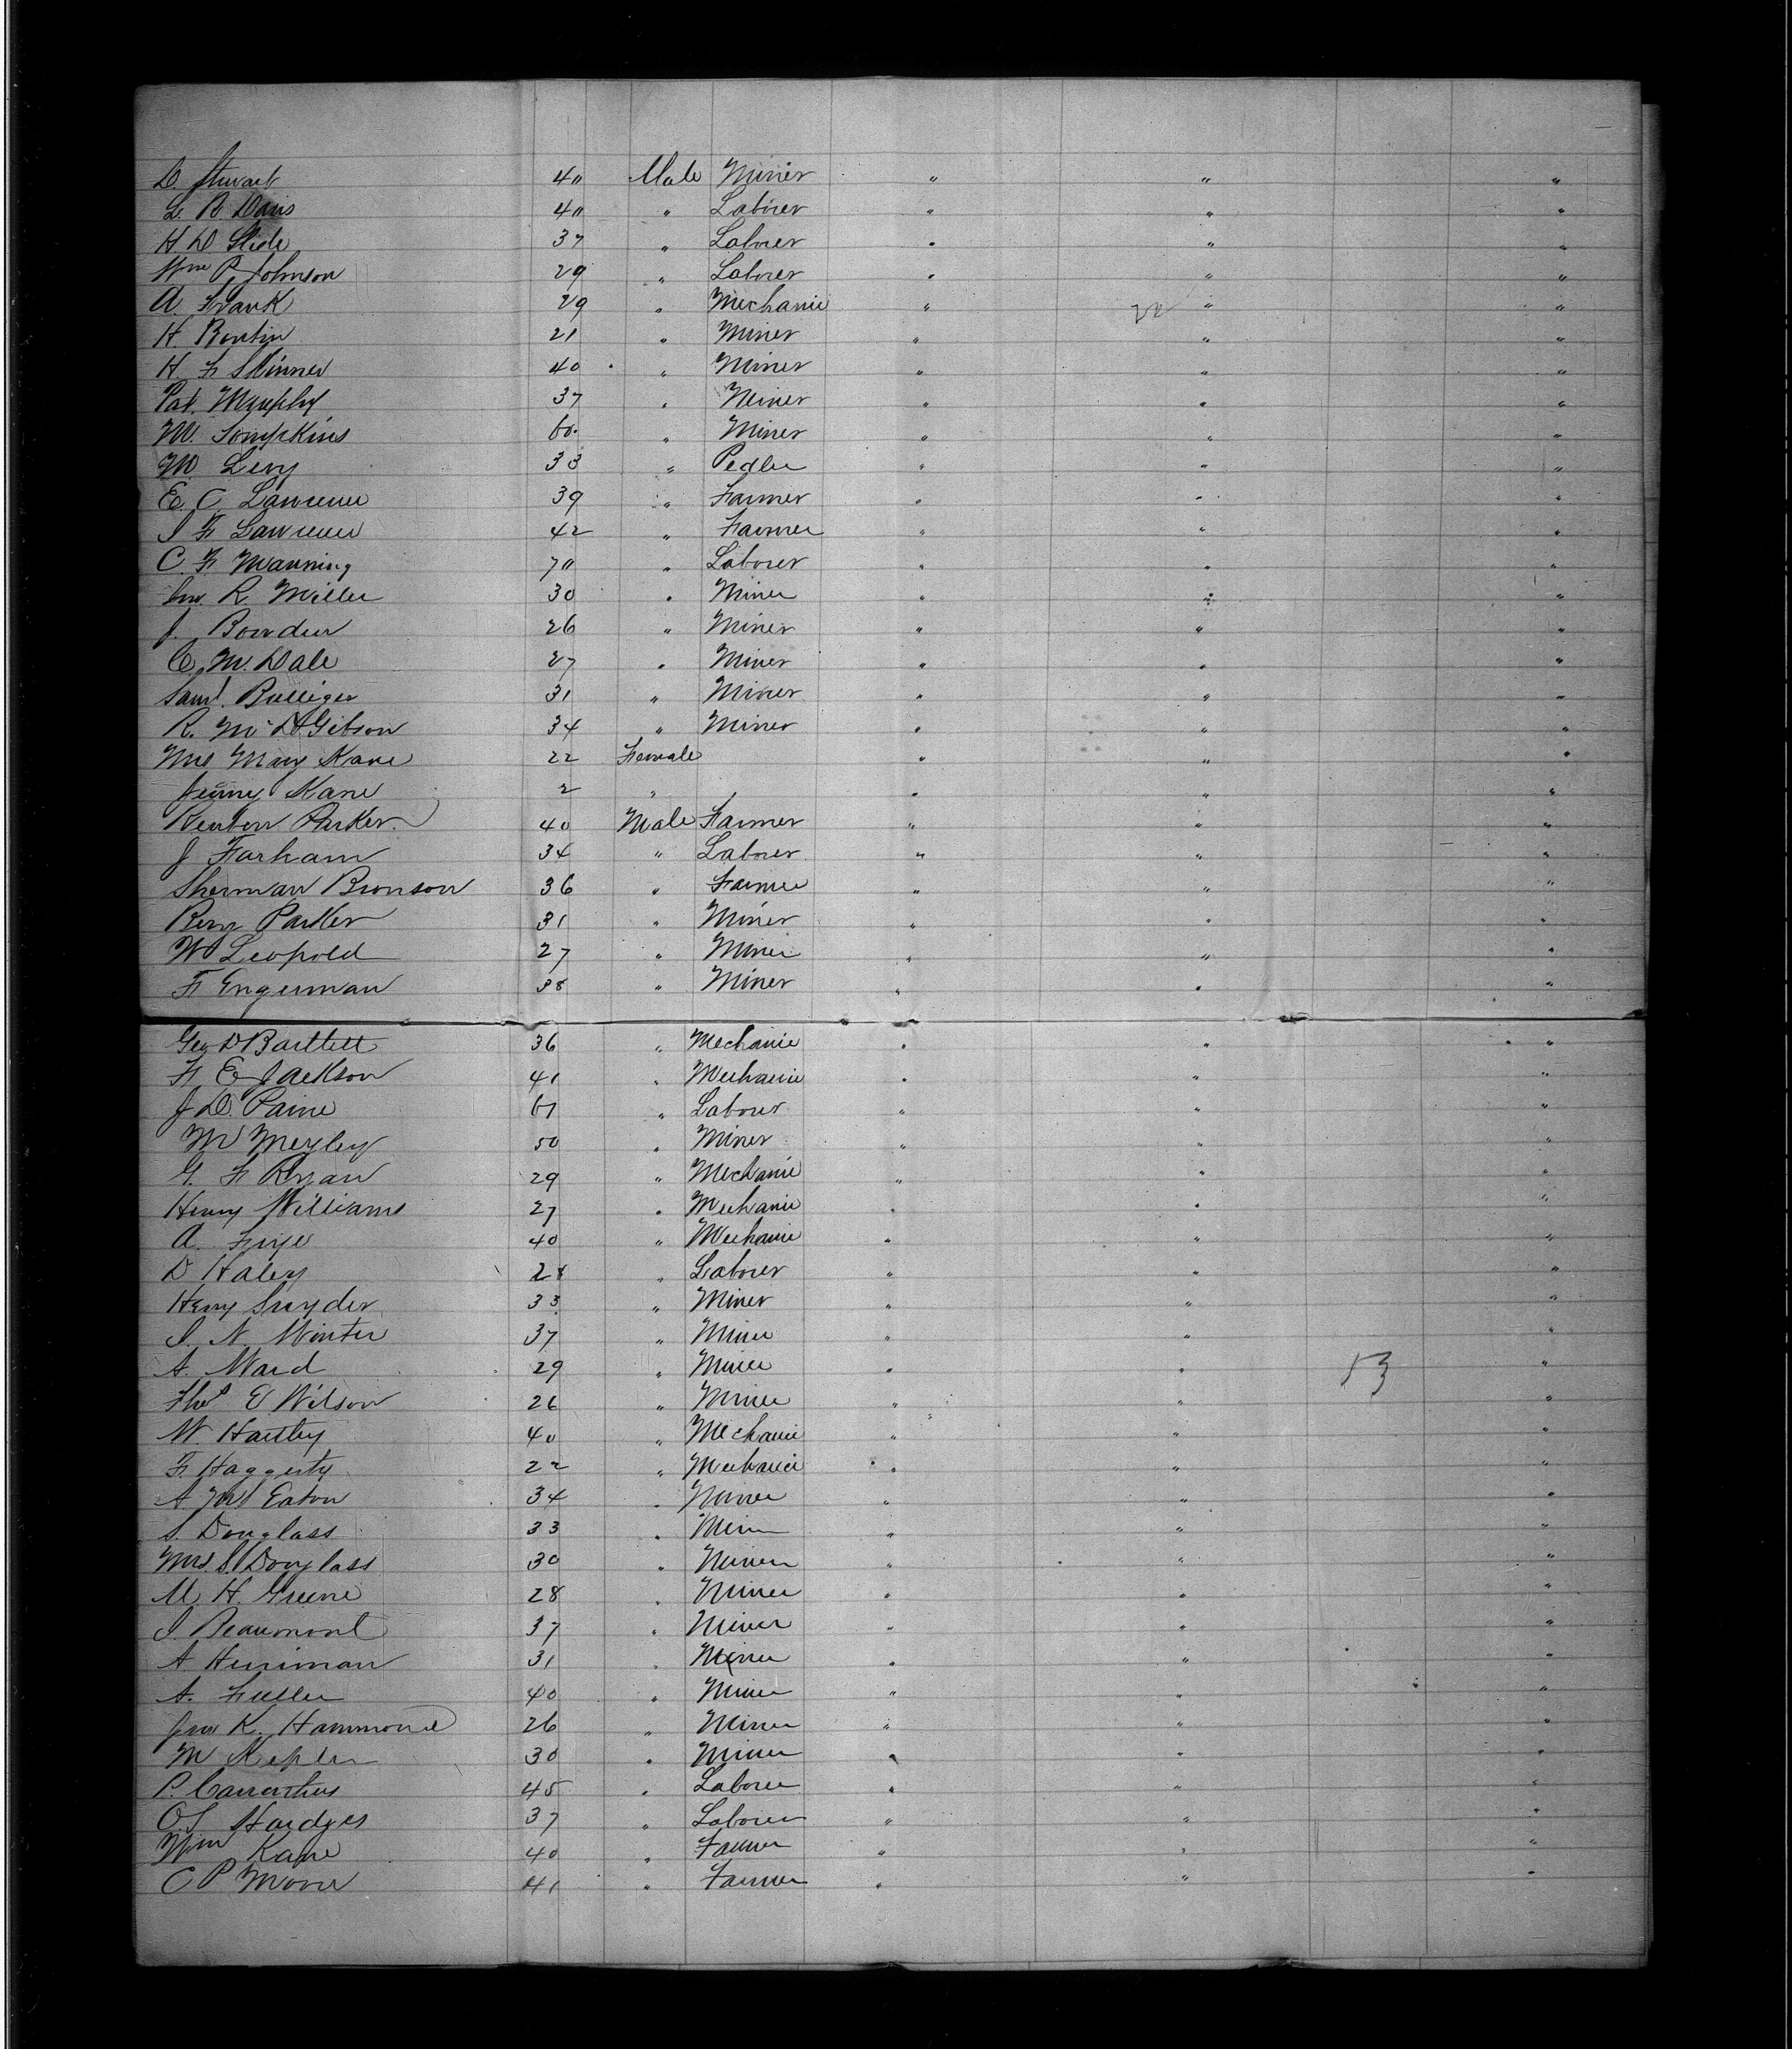 D. Stewart 40 Male Miner " " "
L. R. Davis 40 " Laborer " " "
H D Slide 37 " Laborer " " "
Wm P. Johnson 29 " Laborer " " "
A. Frank 29 " Mechanic " " "
H. Bontin 21 " Miner " " "
H. F Skinner 40 " Miner " " "
Pat. Murphy 37 " Miner " " "
W. Tompkins 60 " Miner " " "
M Levy 33 " Pedler " " "
E. C. Lawrence 39 " Farmer " " "
I F Lawrence 42 " Farmer " " "
C. F Manning 70 " Laborer " " "
Jno. R. Miller 30 " Miner " " "
J. Bowden 26 " Miner " " "
C. M. Dale 27 " Miner " " "
Saml. Bulliger 31 " Miner " " "
R. McD Gibson 34 " Miner " " "
Mrs Mary Kane 22 Female " " "
Jenny Kane 2 " " " "
Reuben Parker 40 Male Farmer " " "
J Farham 34 " Laborer " " "
Sherman Bronson 36 " Farmer " " "
Benj Parker 31 " Miner " " "
W Leopold 27 " Miner " " "
F Engerman 38 " Miner " " "
Geo D Bartlett 36 " Mechanic " " "
F. E Jackson 41 " Mechanic " " "
J D. Paine 61 " Laborer " " "
M Mexley 50 " Miner " " "
G. F Ryan 29 " Mechanic " " "
Henry Williams 27 " Mechanic " " "
A. Frye 40 " Mechanic " " "
D Haley 28 " Laborer " " "
Henry Snyder 33 " Miner " " "
I. N. Winter 37 " Miner " " "
A. Ward 29 " Miner " " 13 "
Thos E Wilson 26 " Miner " " "
W. Hartley 40 " Mechanic " " "
F. Haggerty 22 " Mechanic " " "
A. M. Eaton 34 " Miner " " "
S. Douglass 33 " Miner " " "
Mrs. S. Douglass 30 " Miner " " "
M. H. Greene 28 " Miner " " "
I. Beaumont 37 " Miner " " "
A Herriman 31 " Miner " " "
A. Fuller 40 " Miner " " "
Jno K. Hammond 26 " Miner " " "
M Kepler 30 " Miner " " "
P. Carruthers 45 " Laborer " " "
O. S Hardges 37 " Laborer " " "
Wm Kane 40 " Farmer " " "
C P Moore 41 " Farmer " " "